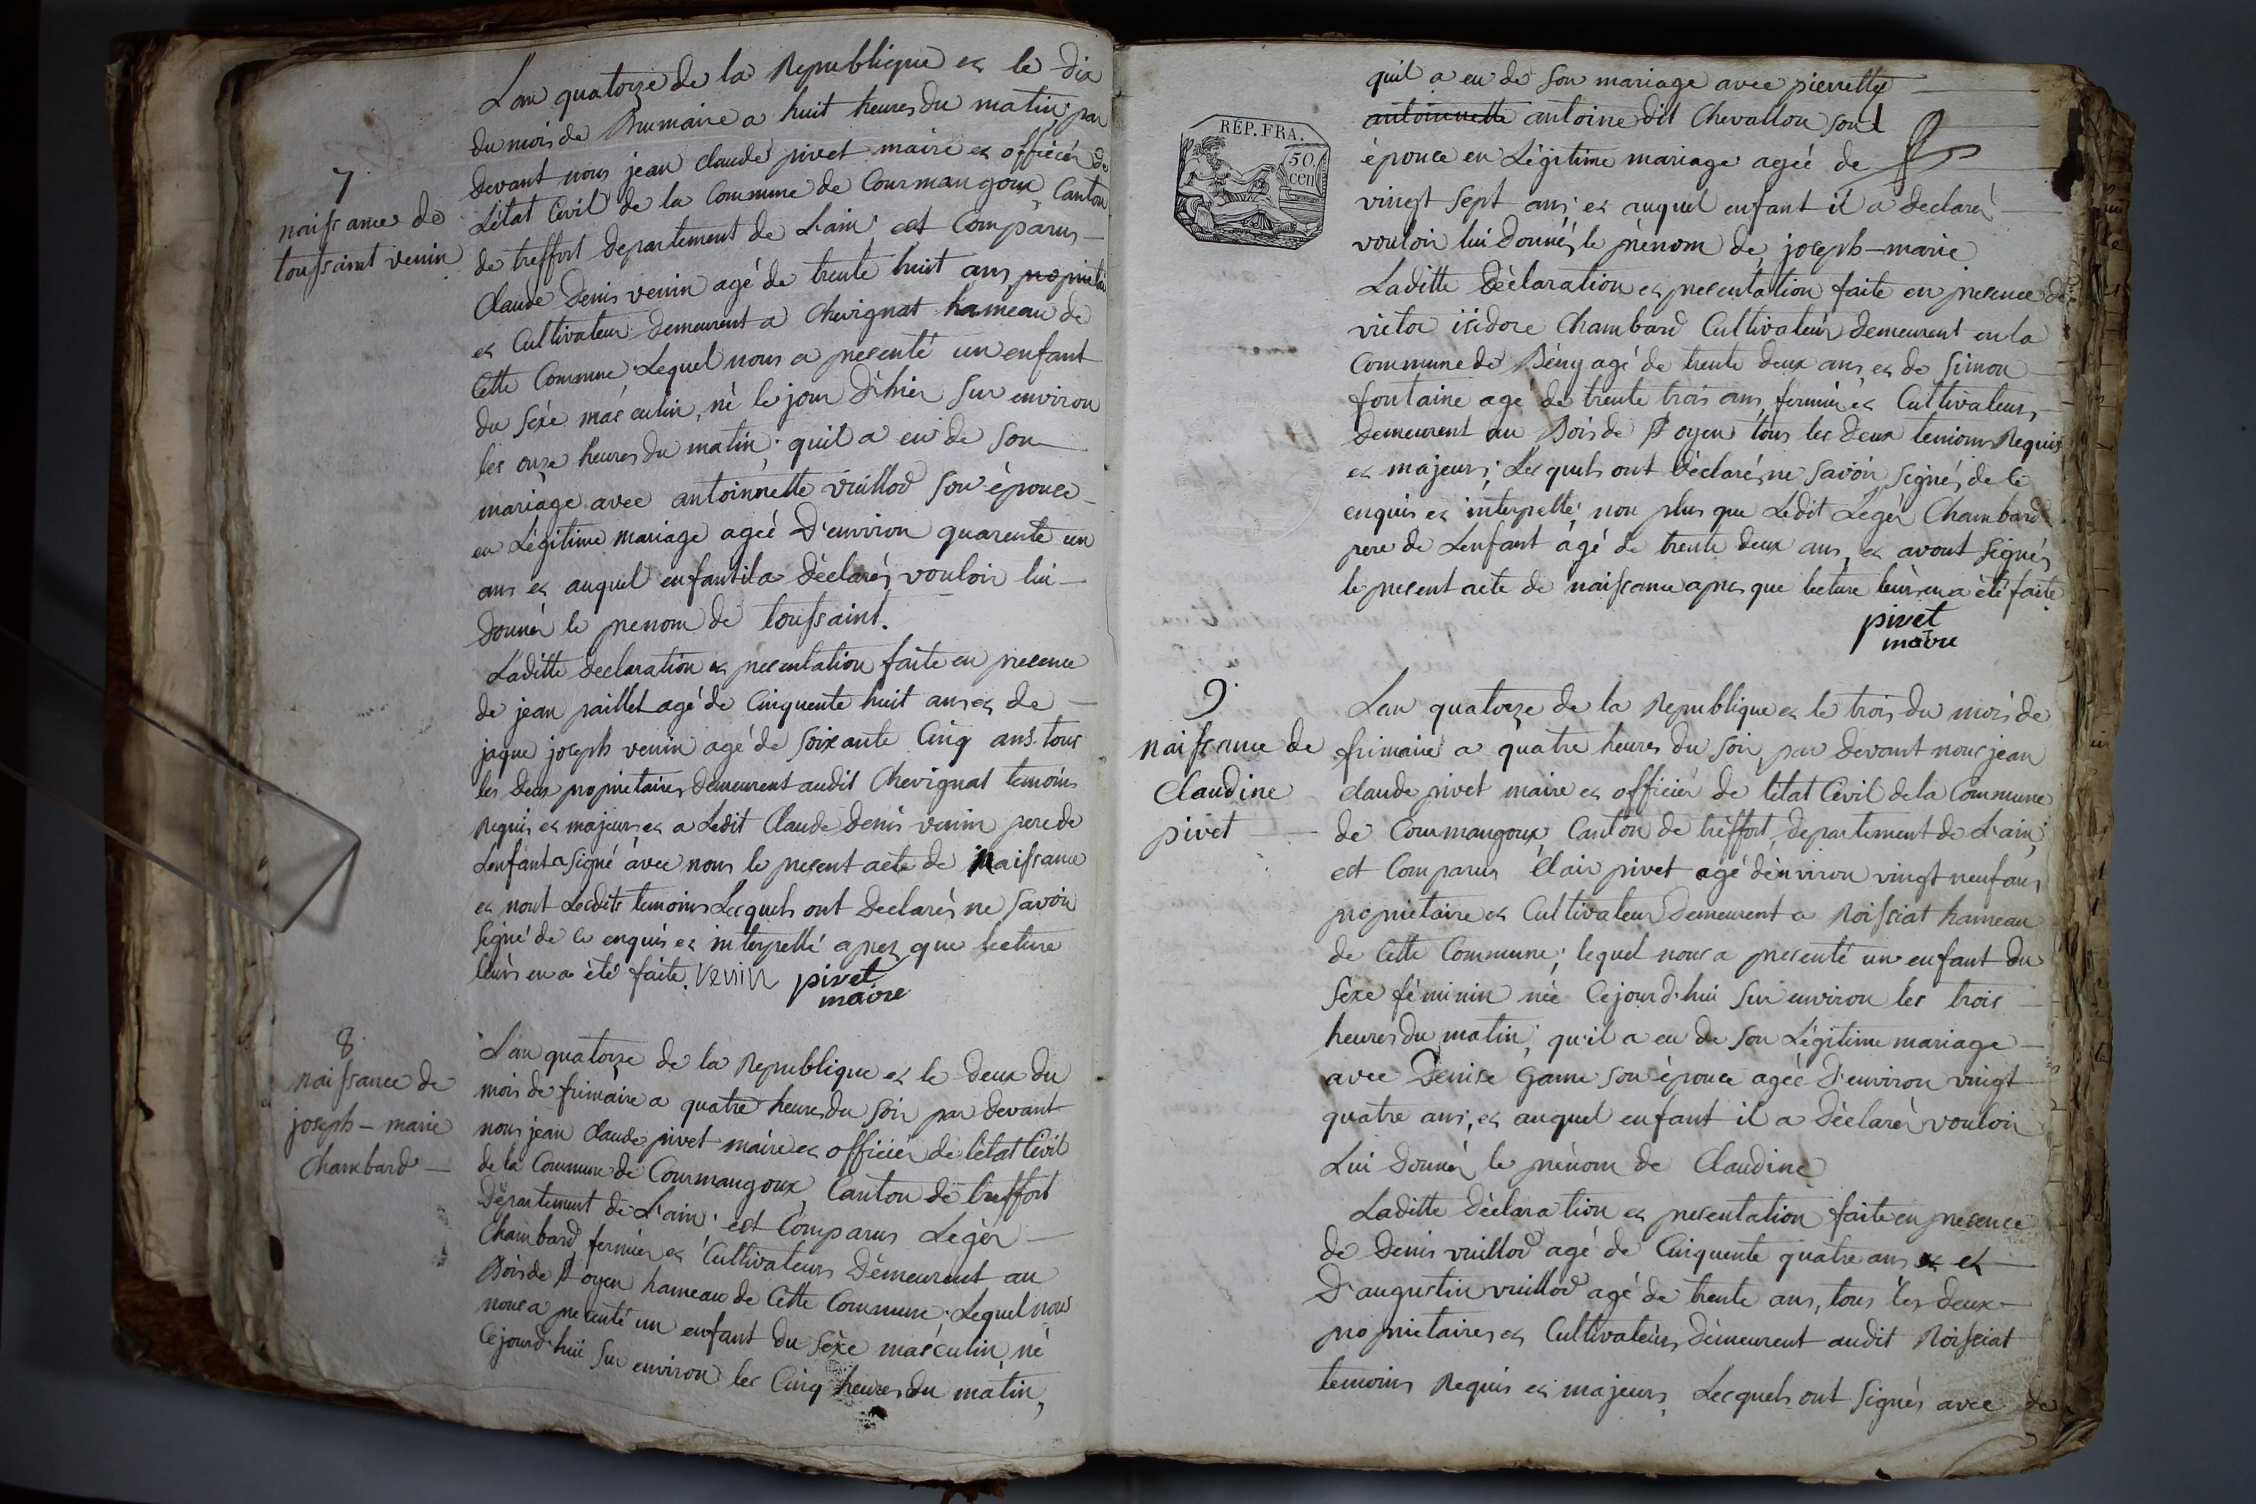 L'an quatorze de la Republique et le dix
du mois de Brumaire a huit heures du matin, par
devant nous jean claude pivet maire et officier de
L'état Civil de la Commune de Courmangoux Canton
de treffort departement de L'ain est Comparus
Claude Denis venin agé de trente huit ans propriétaire
et Cultivateur demeurent a Chevignat hameau de
Cette Commune Lequel nous a presenté un enfant
du sexe masculin, né le jour d'hier sur environ
les onze heures du matin; quil a eu de son
mariage avec antoinnette vuillod son épouce
en Légitime mariage ageé D'environ quarente un
ans et auquel enfant il a déclarés vouloir lui
donner le prenom de toussaint.
Laditte declaration et presentation faite en presence
de jean paillet agé de Cinquente huit ans et de
jaque joseph venin agé de soixante Cinq ans tous
les deux propriétaires demeurent audit Chevignat temoins
Requis et majeurs et a Ledit Claude Denis venin pere de
Lenfant signé avec nous le present acte de naissance
et nont Lesdits temoins Lesquels ont declarés ne savoir
signé de ce enquis et interpellé apres que lecture
leurs en a été faite. venin pivet
maire
7
naissance de
toussaint venin
8
naissance de
joseph - marie
Chambard
L'an quatorze de la Republique et le deux du
mois de frimaire a quatre heures du soir par devant
nous jean claude pivet maire et officier de l'état Civil
de la Commune de Courmangoux Canton de treffort
Département de L'ain est Comparus Légér
Chambard fermier et Cultivateurs Demeurent au
Bois de Doyen hameau de Cette Commune. Lequel nous
nous a presenté un enfant du sexe masculin, né
Cejourd'hui sur environ les Cinq heures du matin,
REP. FRA.
50.
cen
quil a eu de son mariage avec pierrette
antoinnette antoine dit Chevallon son
épouce en Légitime mariage ageé de
vingt sept ans; et auquel enfant il a declaré
vouloir lui donnés le prénom de joseph - marie
Laditte Déclaration et presentation faite en presence de
victor isidore Chambard Cultivateur demeurent en la
Commune de Bény agé de trente deux ans et de Simon
fontaine age de trente trois ans, fermier et Cultivateurs
demeurent au Bois de Doyen tous les deux temoins Requis
et majeurs; Lesquels ont déclarés ne savoir signés de le
enquis et interpellé non plus que Ledit Légér Chambard
pere de Lenfant agé de trente deux ans, et avont signés
le present acte de naissance apres que lecture leurs en a été faite
pivet
maire
9.
naissance de
Claudine
pivet
L'an quatorze de la Republique et le trois du mois de
frimaire a quatre heures du soir, par devant nous jean
claude pivet maire et officier de l'état Civil de la Commune
de Courmangoux, Canton de tréffort, departement de L'ain;
est Comparus Clair pivet agé dénviron vingt neuf ans
propriétaire et Cultivateur demeurent a Roissiat hameau
de Cette Commune; lequel nous a presenté un enfant du
sexe féminin née Cejourd'hui sur environ les trois
heures du matin; qu'il a eu de son Légitime mariage
avec Denise Game son épouce ageé D'environ vingt
quatre ans; et auquel enfant il a Déclarér vouloir
Lui donnér le prénom de Claudine
Laditte Déclaration et presentation faite en presence
de Denis vuillod agé de Cinquente quatre ans et et
D'augustin vuillod agé de trente ans, tous les deux
propriétaires et Cultivateurs démeurent audit Roissiat
temoins Requis et majeurs Lesquels ont signés avec